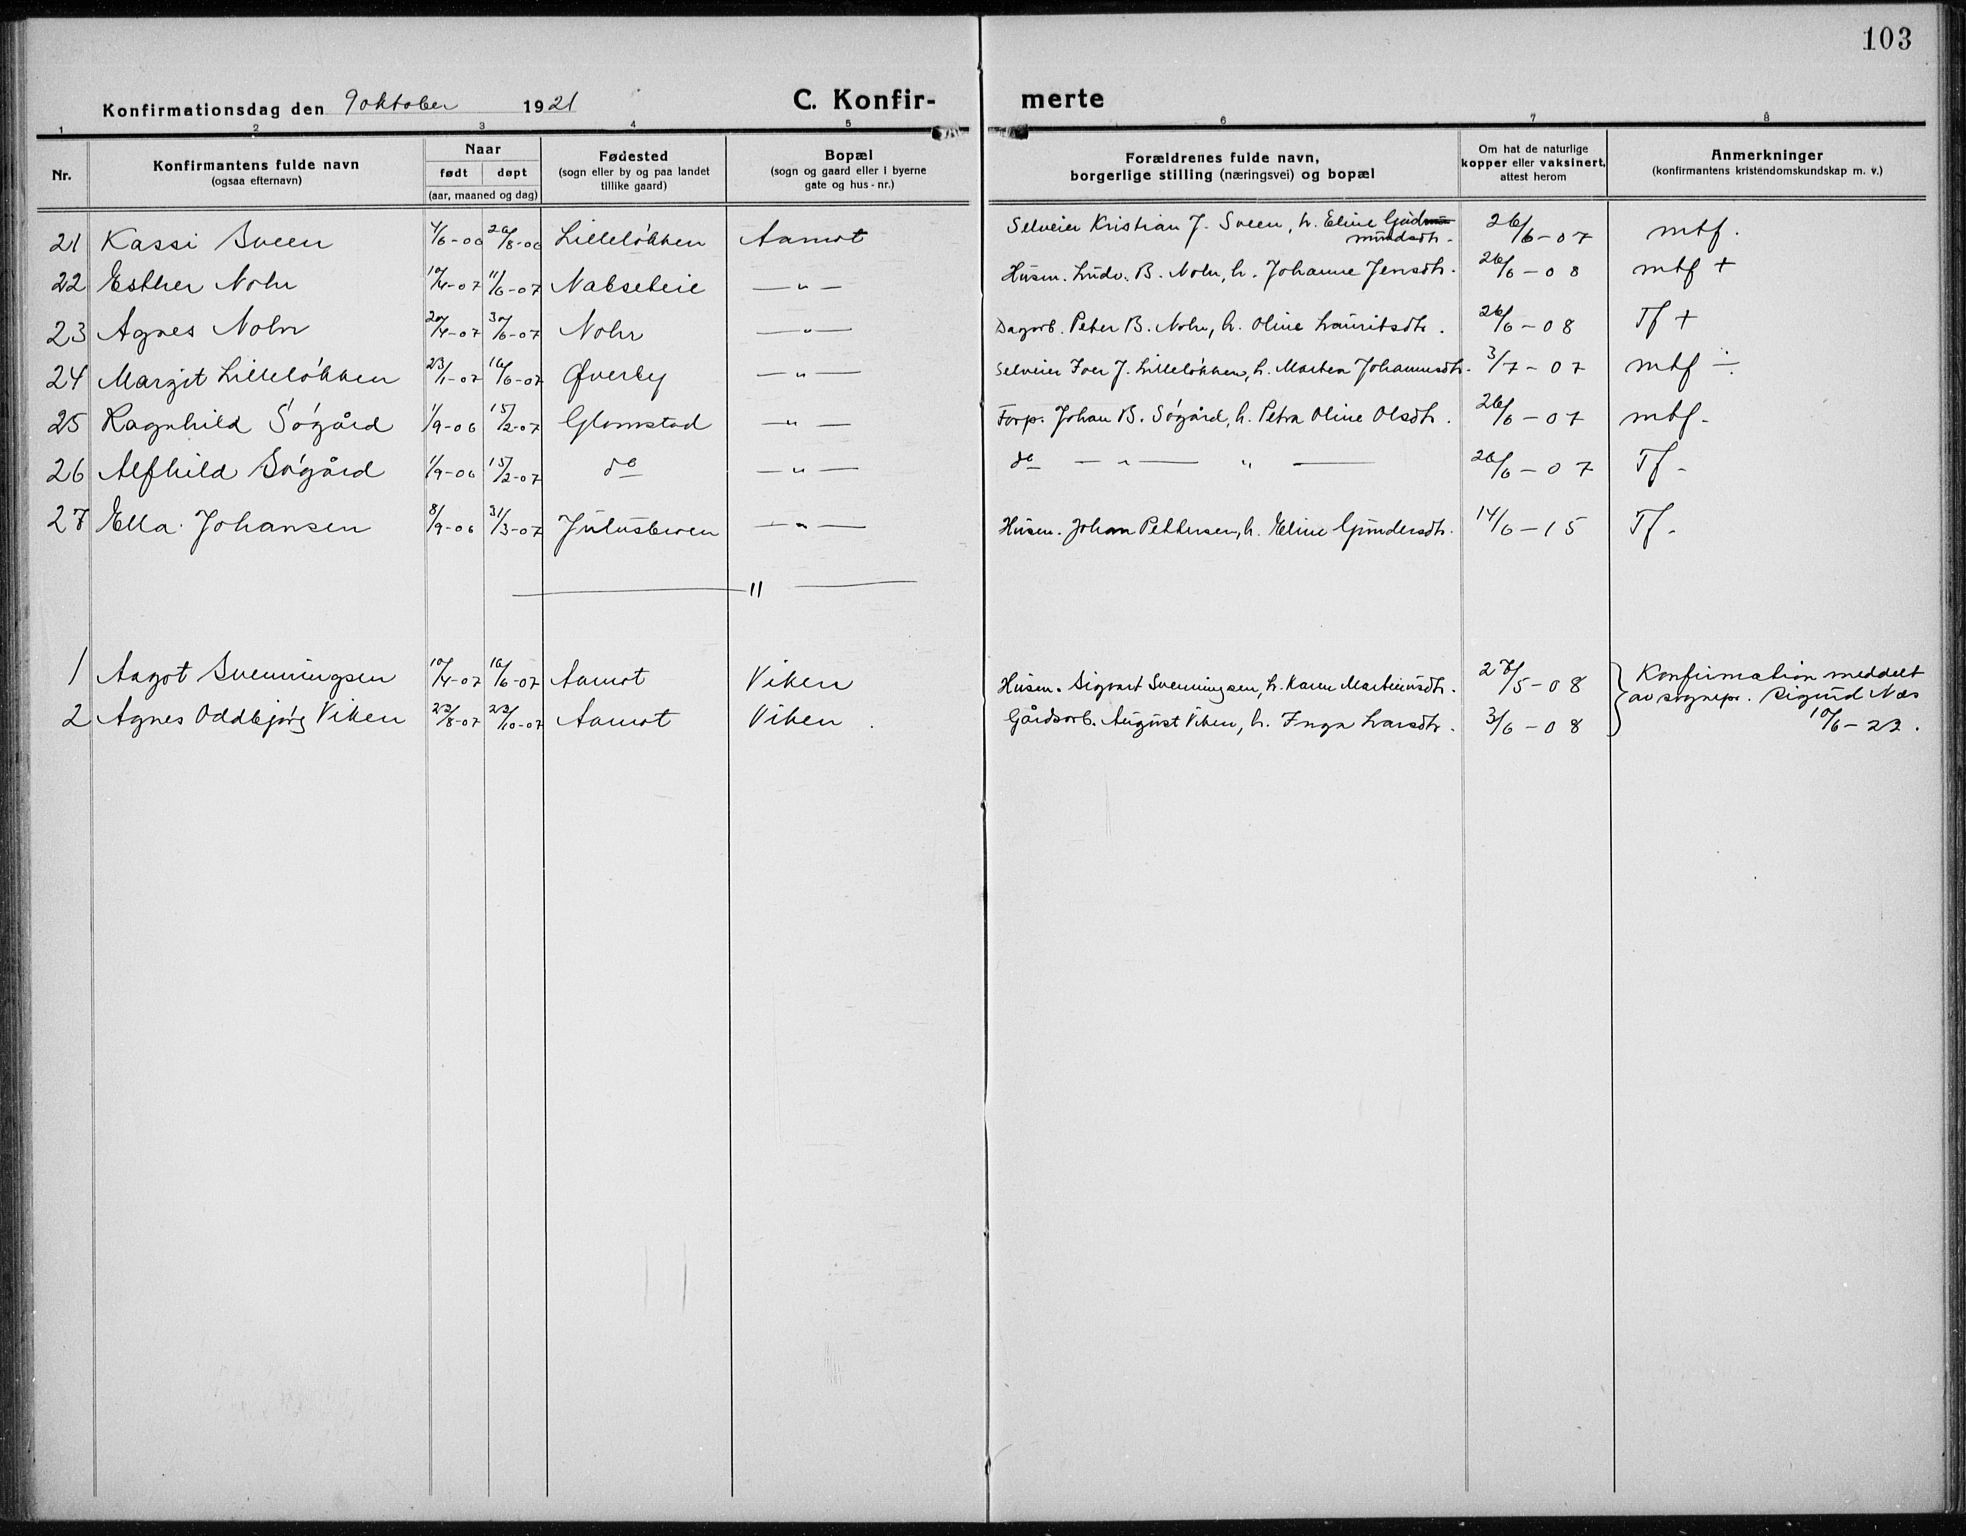 103
Konfirmationsdag den 9 oktober 1921 C. Konfir- merte
1 2 3 4 5 6 7 8
Nr. Konfirmantens fulde navn (ogsaa efternavn) Naar født døpt (aar, maaned og dag) Fødested (sogn eller by og paa landet tillike gaard) Bopæl (sogn og gaard eller i byerne gate og hus-nr.) Forældrenes fulde navn, borgerlige stilling (næringsvei) og bopæl Om hat de naturlige kopper eller vaksinert, attest herom Anmerkninger (konfirmantens kristendomskundskap m. v.)
21 Kassi Sveen 4/6-06 26/8-06 Lilleløkken Aamot Selveier Kristian J. Sveen, h. Eline Gudmundsdtr. 26/6-07 mtf.
22 Esther Nohr 10/4-07 11/6-07 Nabseteie —"— Husm. Ludv. B. Nohr, h. Johanne Jensdtr. 26/6-08 mtf +
23 Agnes Nohr 20/4-07 30/6-07 Nohr —"— Dagarb. Peter B. Nohr, h. Oline Lauritsdtr. 26/6-08 Tf +
24 Margit Lilleløkken 23/1-07 16/6-07 Øverby —"— Selveier Iver J. Lilleløkken, h. Martea Johannesdtr. 3/7-07 mtf ÷
25 Ragnhild Søgård 1/9-06 15/2-07 Glomstad —"— Forp. Johan B. Søgård, h. Petra Oline Olsdtr. 26/6-07 mtf.
26 Alfhild Søgård 1/9-06 15/2-07 do —"— do —"— " — 26/6-07 Tf.
27 Ella Johansen 8/9-06 31/3-07 Julusberen —"— Husm. Johan Pettersen, h. Eline Gundersdtr. 14/6-15 Tf.
— " —
1 Aagot Svenningsen 10/4-07 16/6-07 Aamot Viken Husm. Sigvart Svenningsen, h. Karen Martinusdtr. 27/5-08 Konfirmation meddelt
av sognepr. Sigurd Næs
2 Agnes Oddbjørg Viken 23/8-07 23/10-07 Aamot Viken. Gårdsarb. August Viken, h. Inga Larsdtr. 3/6-08 10/6-22.